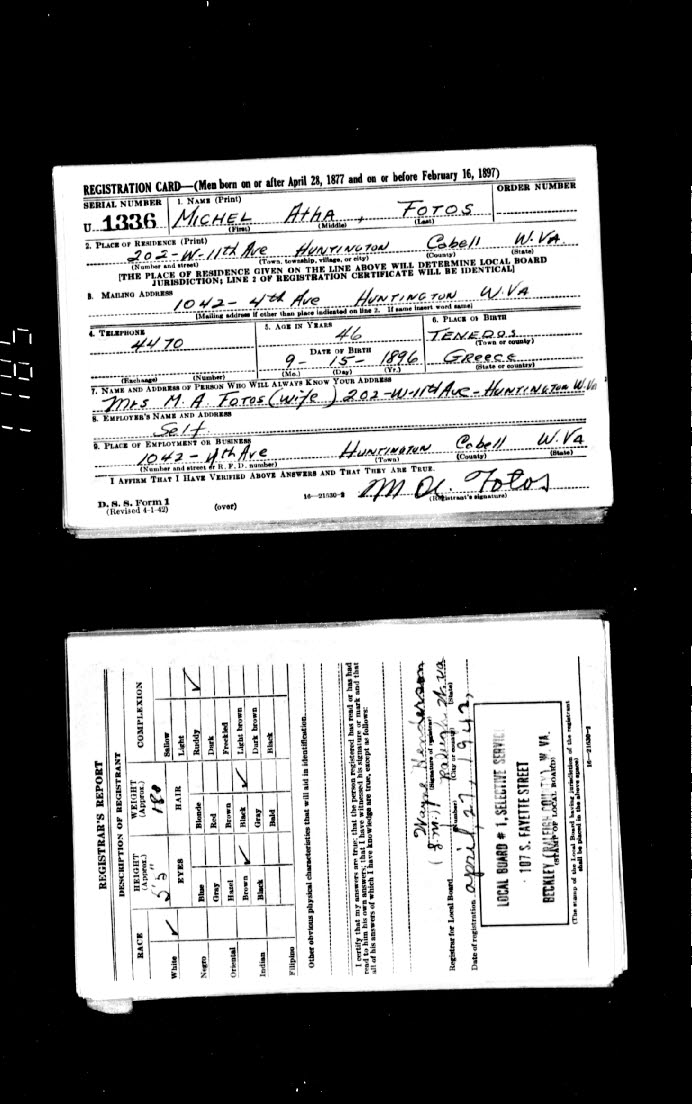 REGISTRATION CARD—(Men born on or after April 28, 1877 and on or before February 16, 1897)
SERIAL NUMBER
1. NAME (Print)
ORDER NUMBER
U 1336
MICHEL AthA, FOTOS
(First) (Middle) (Last)
2. PLACE OF RESIDENCE (Print)
202-W-11th Ave HUNTINGTON Cabell W.VA.
(Number and street) (Town, township, village, or city) (County) (State)
[THE PLACE OF RESIDENCE GIVEN ON THE LINE ABOVE WILL DETERMINE LOCAL BOARD
JURISDICTION; LINE 2 OF REGISTRATION CERTIFICATE WILL BE IDENTICAL]
3. MAILING ADDRESS
1042- 4th Ave HUNTINGTON W.VA
[Mailing address if other than place indicated on line 2. If same insert word same]
4. TELEPHONE
5. AGE IN YEARS
6. PLACE OF BIRTH
4470
46
TENEDOS
(Town or county)
DATE OF BIRTH
9- 15- 1896
GREECE
(Exchange) (Number)
(Mo.) (Day) (Yr.)
(State or country)
7. NAME AND ADDRESS OF PERSON WHO WILL ALWAYS KNOW YOUR ADDRESS
Mrs M. A. FOTOS (Wife) 202-W-11th Ave-HUNTINGTON W.Va
8. EMPLOYER'S NAME AND ADDRESS
Self
9. PLACE OF EMPLOYMENT OR BUSINESS
1042-4th Ave HUNTINGTON Cabell W.Va
(Number and street or R. F. D. number) (Town) (County) (State)
I AFFIRM THAT I HAVE VERIFIED ABOVE ANSWERS AND THAT THEY ARE TRUE.
M A. Fotos
D. S. S. Form 1
(Revised 4-1-42)
(over)
16—21630-2
(Registrant's signature)
REGISTRAR'S REPORT
DESCRIPTION OF REGISTRANT
RACE
HEIGHT (Approx.)
WEIGHT (Approx.)
COMPLEXION
White ✓
5'5"
180
Sallow
EYES
HAIR
Light
Negro
Blue
Blonde
Ruddy ✓
Gray
Red
Dark
Oriental
Hazel
Brown
Freckled
Brown ✓
Black ✓
Light brown
Indian
Black
Gray
Dark brown
Bald
Black
Filipino
Other obvious physical characteristics that will aid in identification
I certify that my answers are true; that the person registered has read or has had
read to him his own answers; that I have witnessed his signature or mark and that
all of his answers of which I have knowledge are true, except as follows:
Wayne Henderson
(Signature of registrar)
Registrar for Local Board
(Number) (City or county) (State)
Date of registration april, 27, 1942,
LOCAL BOARD # 1, SELECTIVE SERVIC
107 S. FAYETTE STREET
BECKLEY (RALEIGH COUNTY) W. VA.
(STAMP OF LOCAL BOARD)
(The stamp of the Local Board having jurisdiction of the registrant
shall be placed in the above space)
16—21630-2